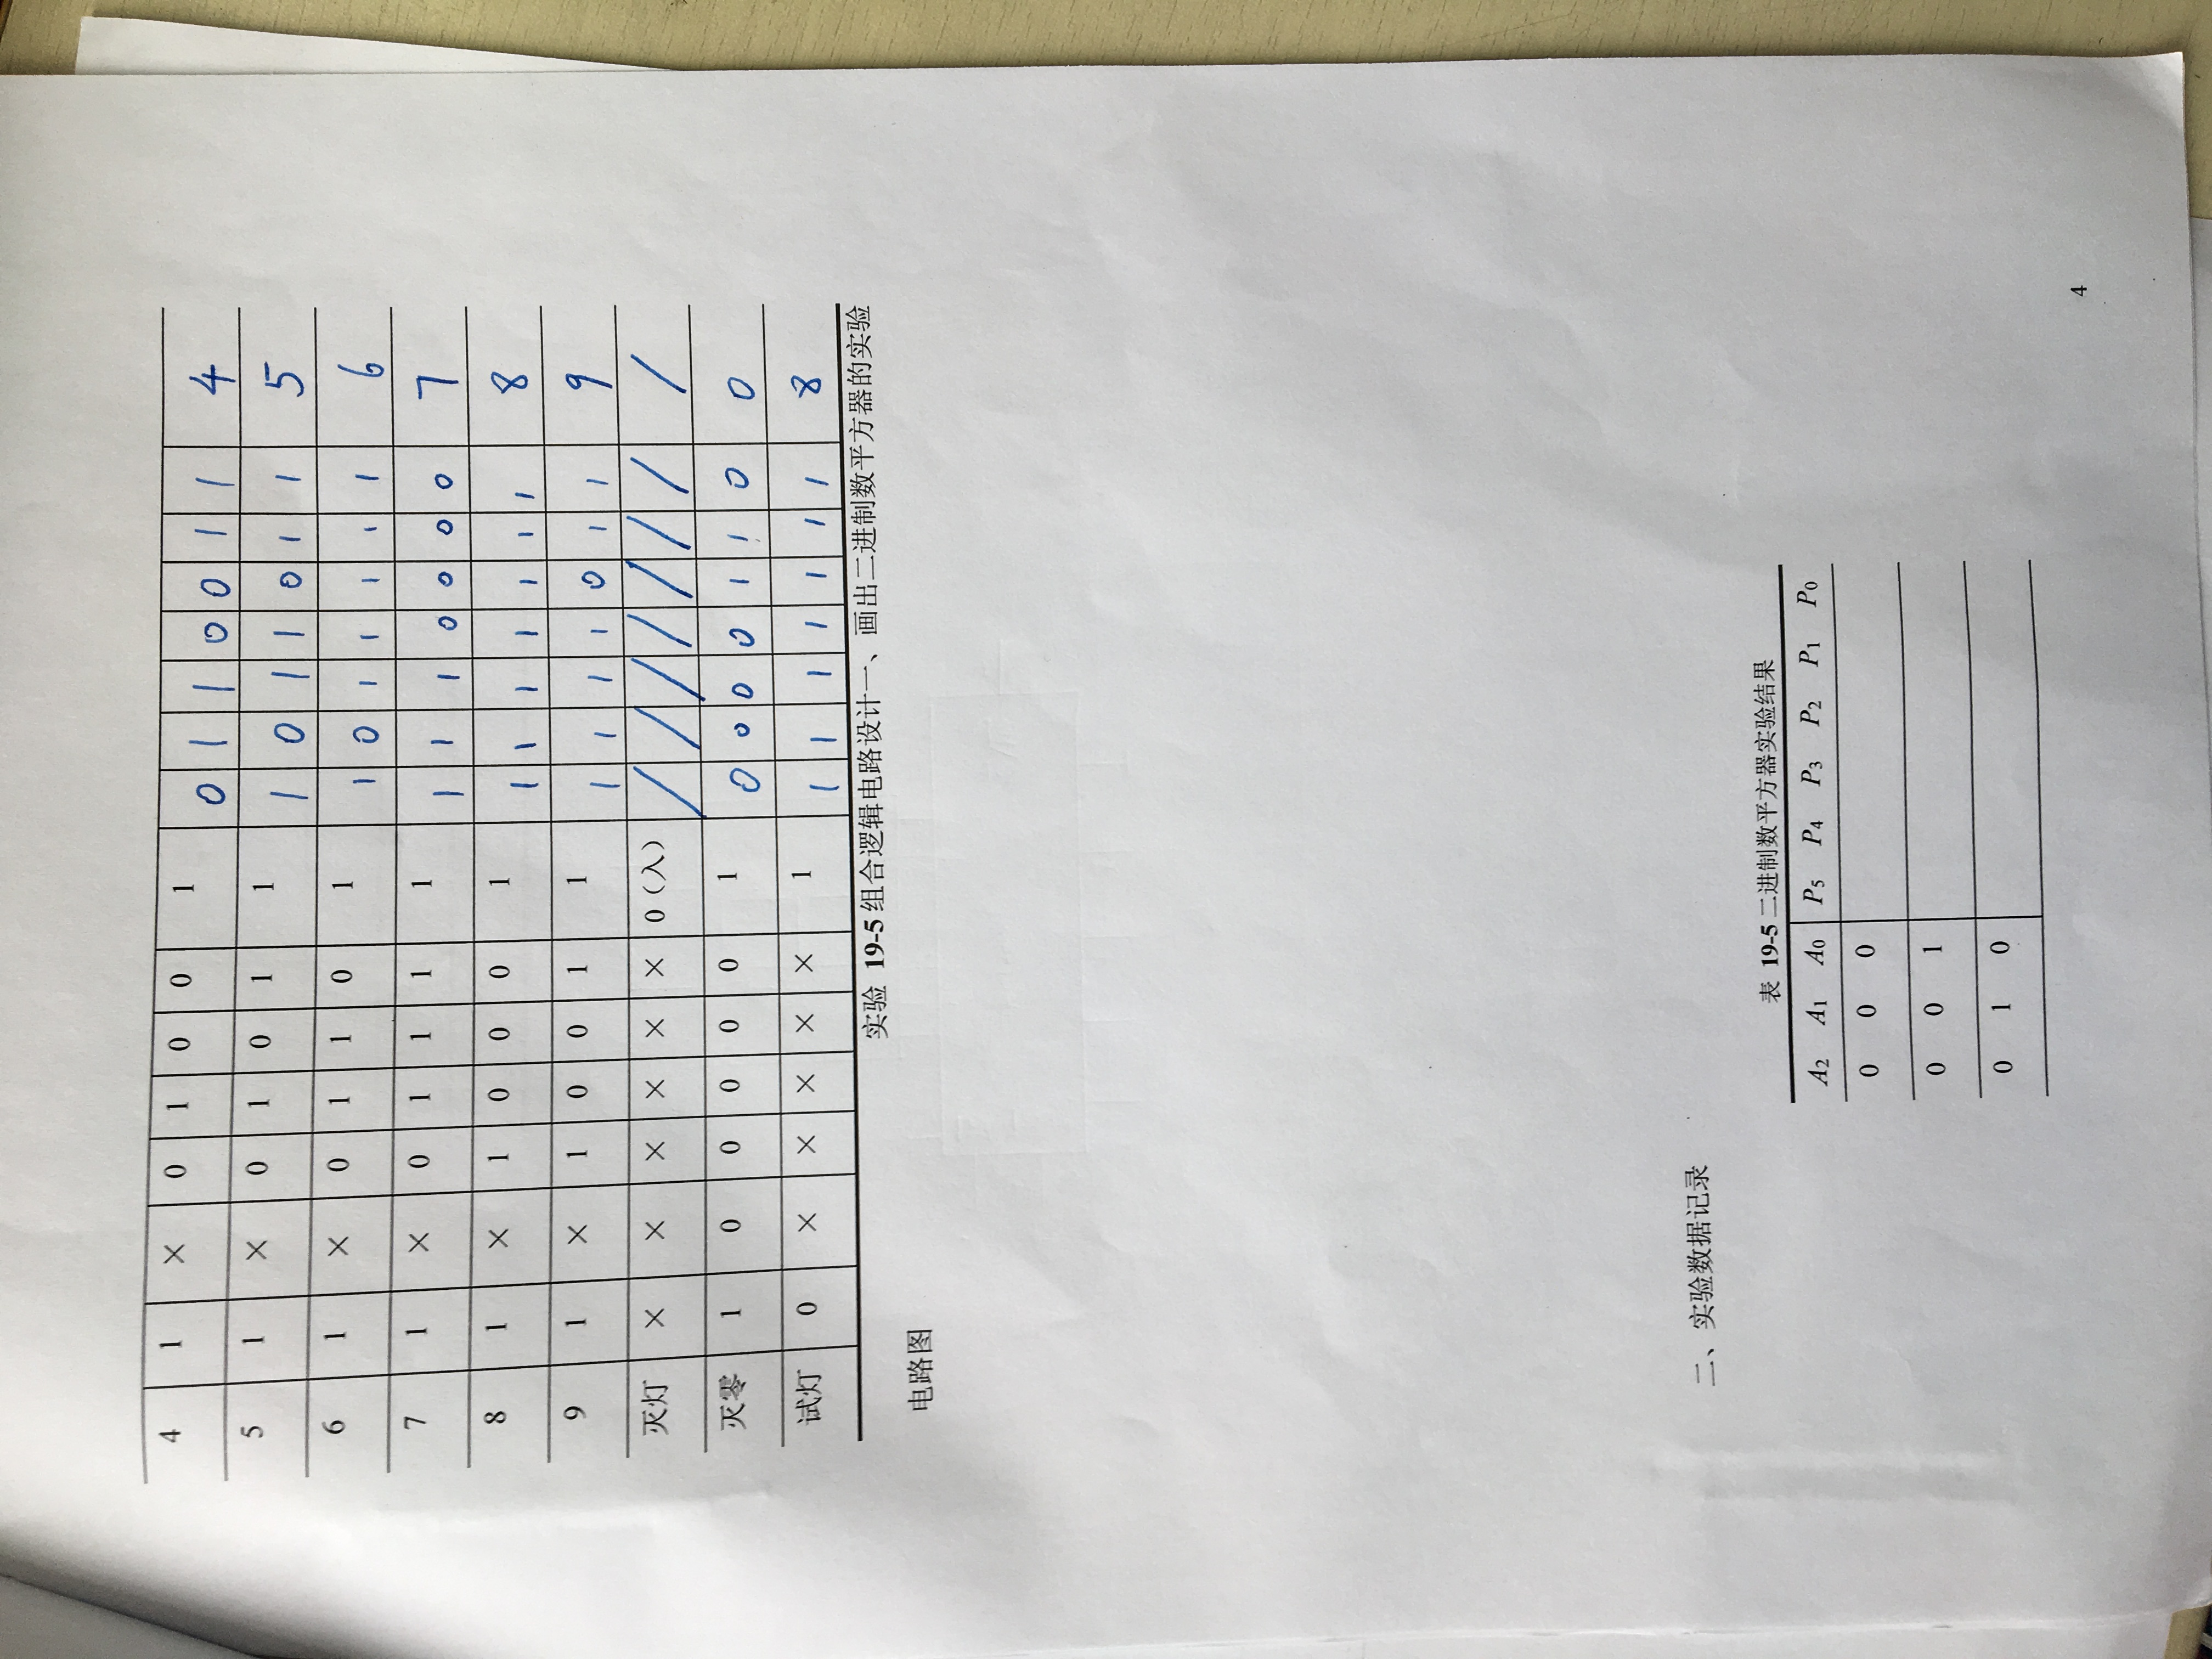 4 1 × 0 1 0 0 1 0 1 1 0 0 1 1 4
5 1 × 0 1 0 1 1 1 0 1 1 0 1 1 5
6 1 × 0 1 1 0 1 1 0 1 1 1 1 1 6
7 1 × 0 1 1 1 1 1 1 1 0 0 0 0 7
8 1 × 1 0 0 0 1 1 1 1 1 1 1 1 8
9 1 × 1 0 0 1 1 1 1 1 1 0 1 1 9
灭灯 × × × × × × 0（入） / / / / / / / /
灭零 1 0 0 0 0 0 1 0 0 0 0 1 1 0 0
试灯 0 × × × × × 1 1 1 1 1 1 1 1 8
实验 19-5 组合逻辑电路设计一、画出二进制数平方器的实验
电路图
二、实验数据记录
表 19-5 二进制数平方器实验结果
A2 A1 A0 P5 P4 P3 P2 P1 P0
0 0 0
0 0 1
0 1 0
4